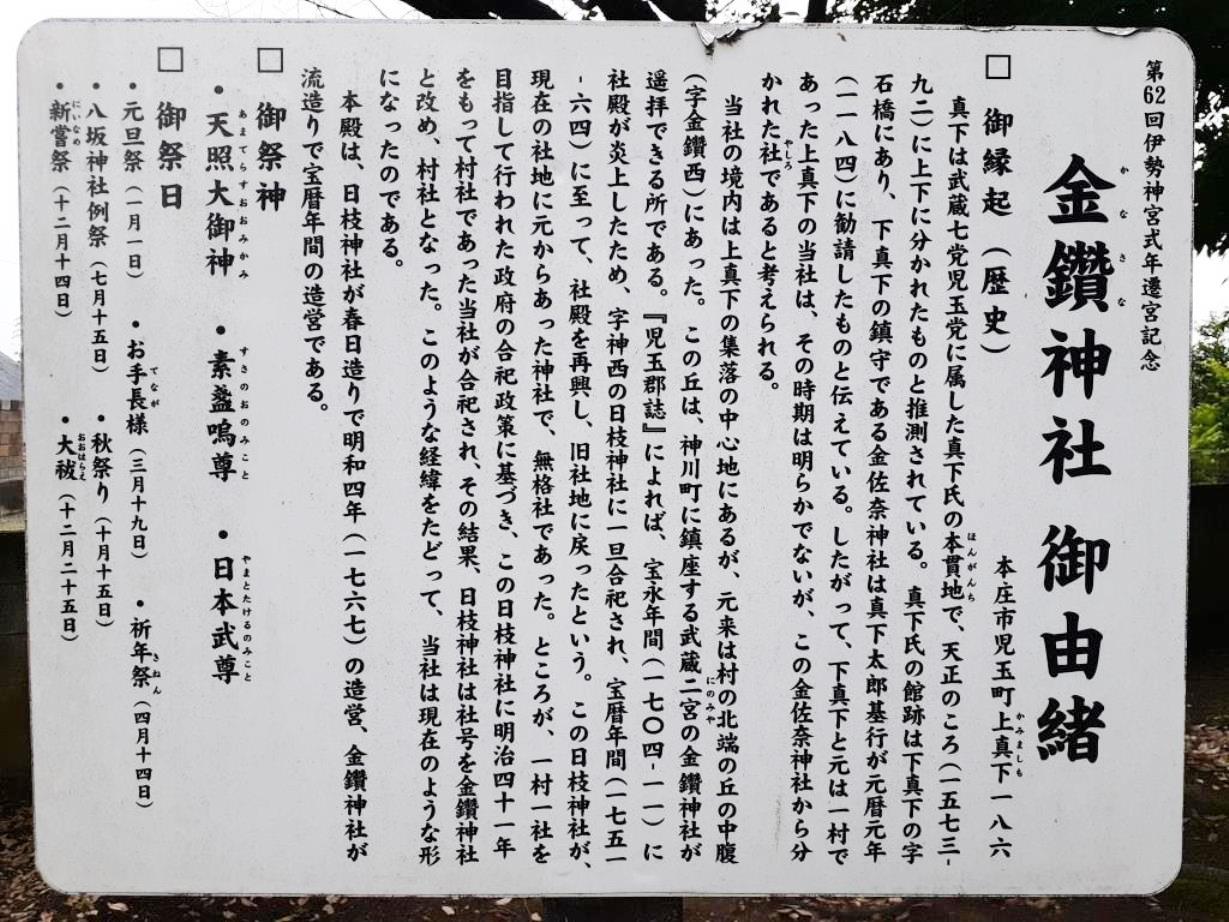 第62回伊勢神宮式年遷宮記念
金鑽神社 御由緒
かなさな
□ 御縁起（歴史）
本庄市児玉町上真下一八六
かみましも
真下は武蔵七党児玉党に属した真下氏の本貫地で、天正のころ（一五七三-
ほんがんち
九二）に上下に分かれたものと推測されている。真下氏の館跡は下真下の字
石橋にあり、下真下の鎮守である金佐奈神社は真下太郎基行が元暦元年
（一一八四）に勧請したものと伝えている。したがって、下真下と元は一村で
あった上真下の当社は、その時期は明らかでないが、この金佐奈神社から分
かれた社であると考えられる。
やしろ
当社の境内は上真下の集落の中心地にあるが、元来は村の北端の丘の中腹
（字金鑽西）にあった。この丘は、神川町に鎮座する武蔵二宮の金鑽神社が
にのみや
遥拝できる所である。『児玉郡誌』によれば、宝永年間（一七〇四-一一）に
社殿が炎上したため、字神西の日枝神社に一旦合祀され、宝暦年間（一七五一
-六四）に至って、社殿を再興し、旧社地に戻ったという。この日枝神社が、
現在の社地に元からあった神社で、無格社であった。ところが、一村一社を
目指して行われた政府の合祀政策に基づき、この日枝神社に明治四十一年
をもって村社であった当社が合祀され、その結果、日枝神社は社号を金鑽神社
と改め、村社となった。このような経緯をたどって、当社は現在のような形
になったのである。
本殿は、日枝神社が春日造りで明和四年（一七六七）の造営、金鑽神社が
流造りで宝暦年間の造営である。
□ 御祭神
・天照大御神 ・素盞嗚尊 ・日本武尊
あまてらすおおみかみ すさのおのみこと やまとたけるのみこと
□ 御祭日
・元旦祭（一月一日） ・お手長様（三月十九日） ・祈年祭（四月十四日）
てなが きねん
・八坂神社例祭（七月十五日） ・秋祭り（十月十五日）
・新嘗祭（十二月十四日） ・大祓（十二月二十五日）
にいなめ おおはらえ